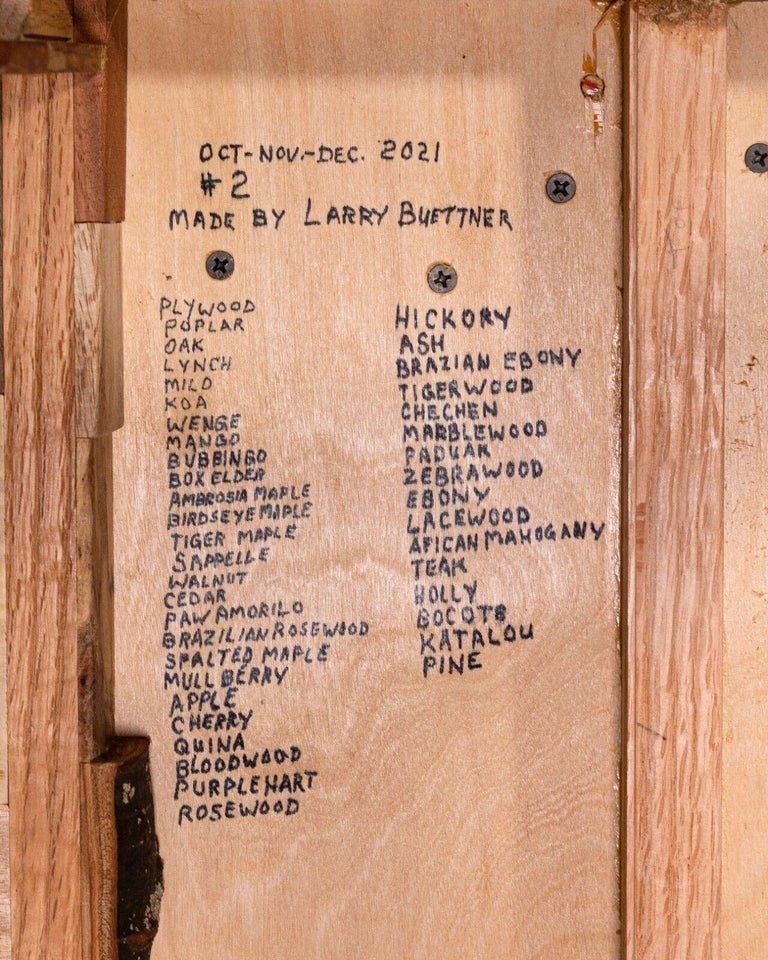 OCT-NOV.-DEC. 2021
#2
MADE BY LARRY BUETTNER
PLYWOOD
POPLAR
OAK
LYNCH
MILO
KOA
WENGE
MANGO
BUBBINGO
BOX ELDER
AMBROSIA MAPLE
BIRDSEYE MAPLE
TIGER MAPLE
SAPPELLE
WALNUT
CEDAR
PAW AMORILO
BRAZILIAN ROSEWOOD
SPALTED MAPLE
MULLBERRY
APPLE
CHERRY
QUINA
BLOODWOOD
PURPLEHART
ROSEWOOD
HICKORY
ASH
BRAZIAN EBONY
TIGERWOOD
CHECHEN
MARBLEWOOD
PADUAK
ZEBRAWOOD
EBONY
LACEWOOD
AFICAN MAHOGANY
TEAK
HOLLY
BOCOTE
KATALOU
PINE